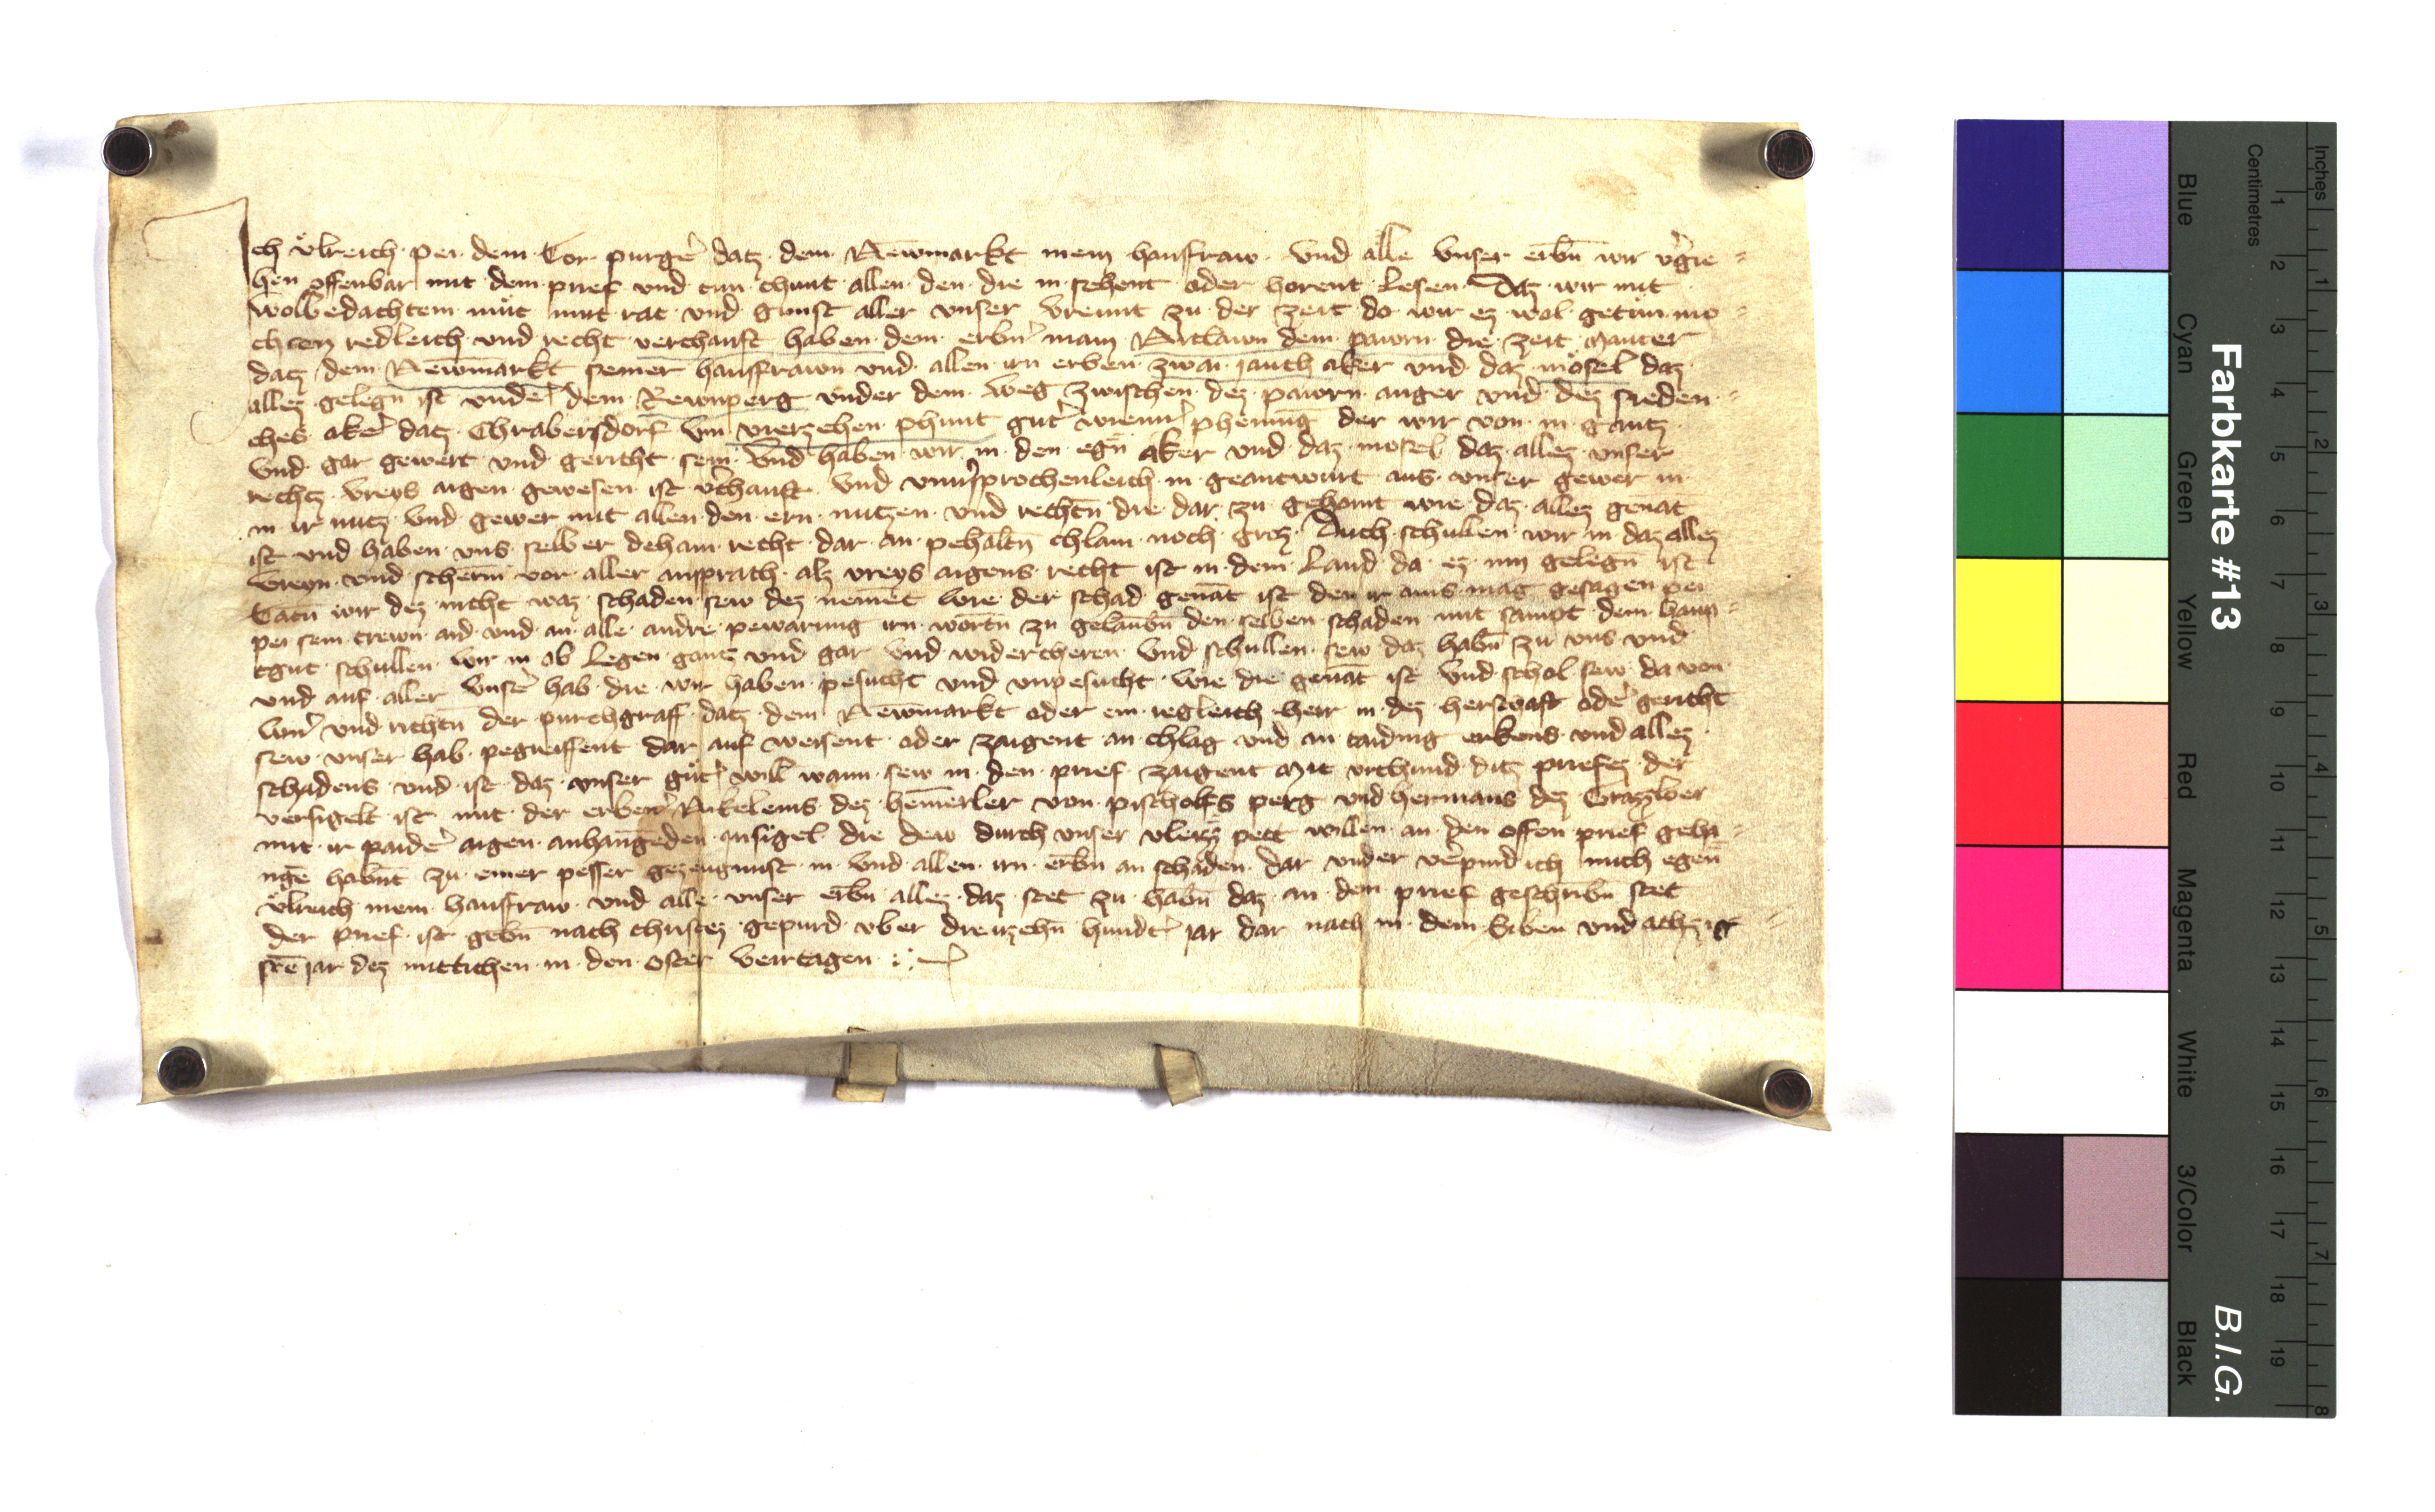 Ich vͦlreich pei dem Tor purgͤ datz dem Newmarkt mein hausfraw vnd alle vnser erbn̄ wir vᷣgie=
hen offenbar mit dem prief vnd tun chunt allen den die in sehent oder horent lesen Daz wir mit
wolbedachtem mͤut mit rat vnd gunst aller vnser vreunt zu der zeit do wir ez wol getun mo=
chten redleich vnd recht verchauft haben dem erbnᷣ man dem pawrn die zeit Mauter
datz dem Newmarkt seiner hausfrawn vnd allen irn erben zwai jauch aker vnd daz mosel daz
allez gelegn̄ ist vnder dem Rewnperg vnder dem weg zwischen dez pawrn anger vnd dez
ches akeᷣ datz Chrabersdorf vm vierzehen phunt gutᷣ wiennᷣ phening der wir von in gantz
vnd gar gewert vnd gericht sein vnd haben wir in den egn̄ aker vnd daz mosel daz allez vnser
rechtz vreys aigen gewesen ist vᷣchauft vnd vnuᷣsprochenleich in geantwurt aus vnser gewer in
in ir nutz vnd gewer mit allen den ern nutzen vnd rechtn̄ die dar zu gehornt wie daz allez genāt
ist vnd haben vns selber dehain recht dar an pehaltn̄ chlain noch groz Auch schullen wir in daz allez
vreyn vnd scherm̄ vor aller ansprach alz vreys aigens recht ist in dem Land da ez inn gelegn̄ ist
Tatn̄ wir dez nicht waz schaden sew dez nement wie der schad genāt ist den ir ains mag gesagen pei
pei sein trewn aid vnd an alle andre pewarung irn wortn̄ zu gelaubn̄ den selben schaden mit sampt dem haup=
tgut schullen wir in ab legen gantz vnd gar vnd widercheren vnd schullen sew daz habn̄ zu vns vnd
vnd auf aller vnserᷣ hab die wir haben pesucht vnd vnpesucht wie die genāt ist vnd schol sew da von
wernᷣ vnd richtn̄ der purchgraff datz dem Newmarkt oder ein iegleich herr in dez herschaft odeᷣ gericht
sew vnser hab pegreiffent dar auf weisent oder zaigent an chlag vnd an taiding erkens vnd allez
schadens vnd ist daz vnser gutᷣ will wann sew in den prief zaigent Mit vrchund ditz priefez der
versigelt ist mit der erberᷣ Nikeleins dez hemerler von pischolfs perg vnd hermans dez
mit ir paideᷣ aigen anhangeden insigel die dew durch vnser pett willen an den offen prief geha=
ngē habnt zu einer pesser gezeugnust in vnd allen irn erbn̄ an schaden dar vnder veᷣpind ich mich egen̄
vͦlreich mein hausfraw vnd alle vnser erbn̄ allez daz stet zu habn̄ daz an dem prief geschribn̄ stet
der prief ist gebn̄ nach christez gepurd vber dreuzehn̄ hundtᷣ jar dar nach in dem Siben vnd achzigi
stē jar dez mittichen in den oster veirtagen
Farbkarte #13
B.I.G.
Blue
Cyan
Green
Yellow
Red
Magenta
White
3/Color
Black
Centimetres
1 2 3 4 5 6 7 8 9 10 11 12 13 14 15 16 17 18 19
Inches
1 2 3 4 5 6 7 8